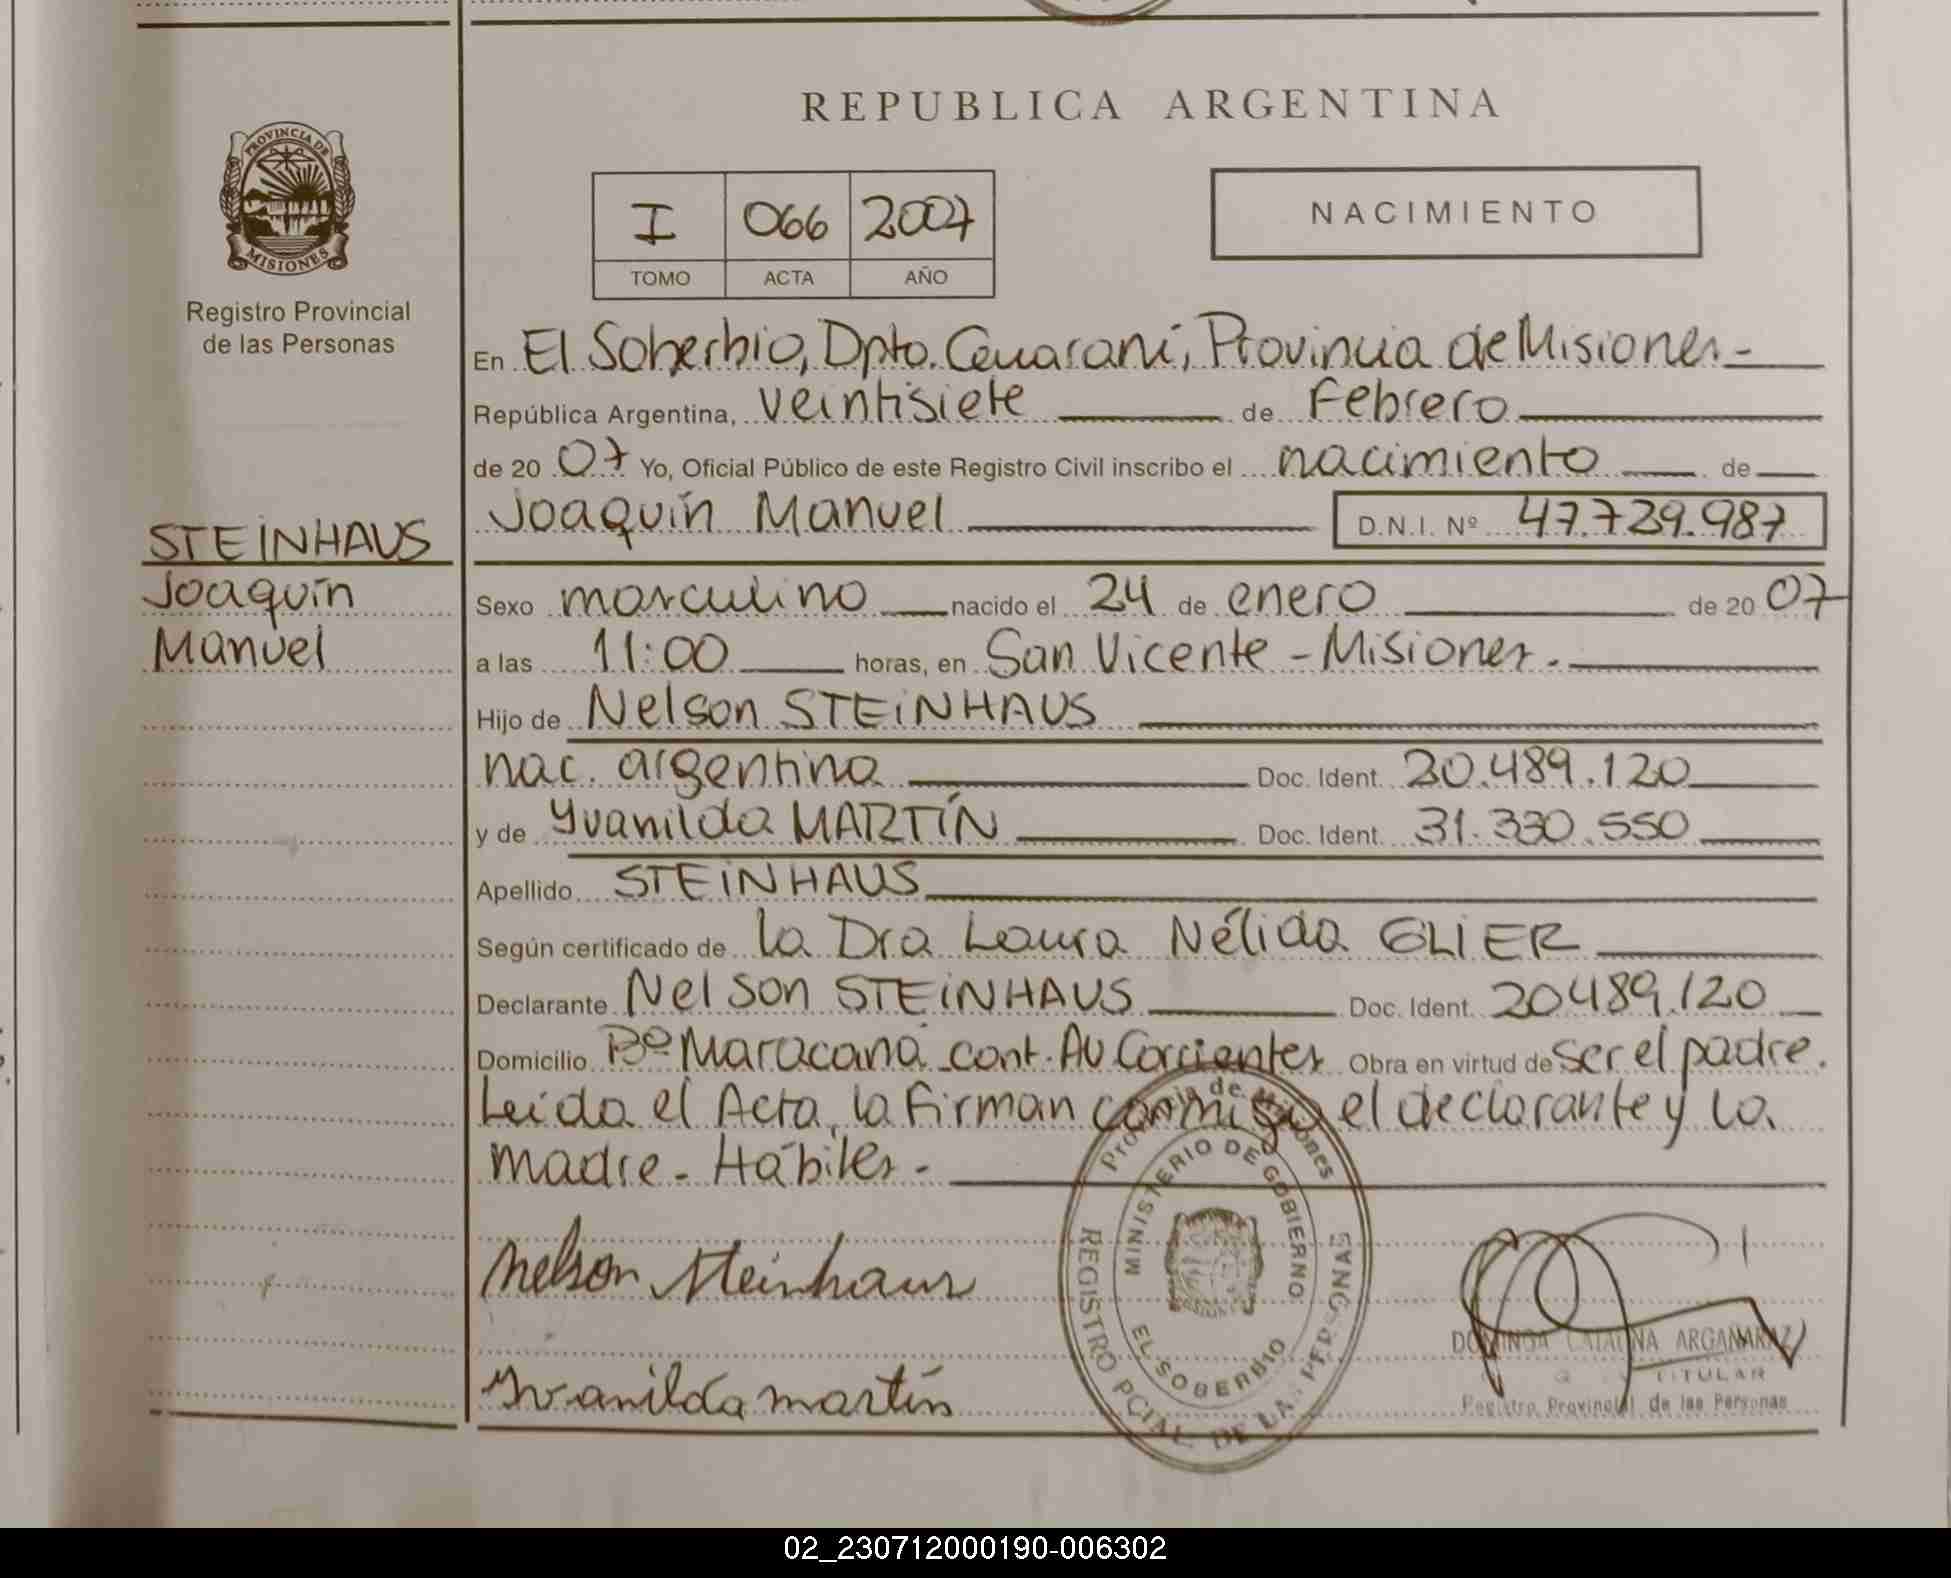 REPUBLICA ARGENTINA
PROVINCIA DE
MISIONES
Registro Provincial
de las Personas
I 066 2007
TOMO ACTA AÑO
NACIMIENTO
En El Soberbio, Dpto. Guaraní, Provincia de Misiones-
República Argentina, veintisiete de Febrero
de 20 07 Yo, Oficial Público de este Registro Civil inscribo el nacimiento de
Joaquín Manuel D.N.I. Nº 47.739.987
STEINHAUS
Joaquín
Manuel
Sexo masculino nacido el 24 de enero de 20 07
a las 11:00 horas, en San Vicente - Misiones.
Hijo de Nelson STEINHAUS
nac. argentina Doc. Ident. 20.489.120
y de Yvanilda MARTÍN Doc. Ident. 31.330.550
Apellido STEINHAUS
Según certificado de la Dra Laura Nélida GLIER
Declarante Nelson STEINHAUS Doc. Ident. 20489.120
Domicilio Bº Maracaná cont. Av Corrientes Obra en virtud de ser el padre.
Leída el Acta, la firman conmigo el declarante y la
madre - Hábiles -
Nelson Steinhaus
Yvanilda martín
Provincia de Misiones
MINISTERIO DE GOBIERNO
EL SOBERBIO
REGISTRO PCIAL. DE LAS PERSONAS
DOMINGA CATALINA ARGAÑARAZ
TITULAR
Registro Provincial de las Personas
02_230712000190-006302